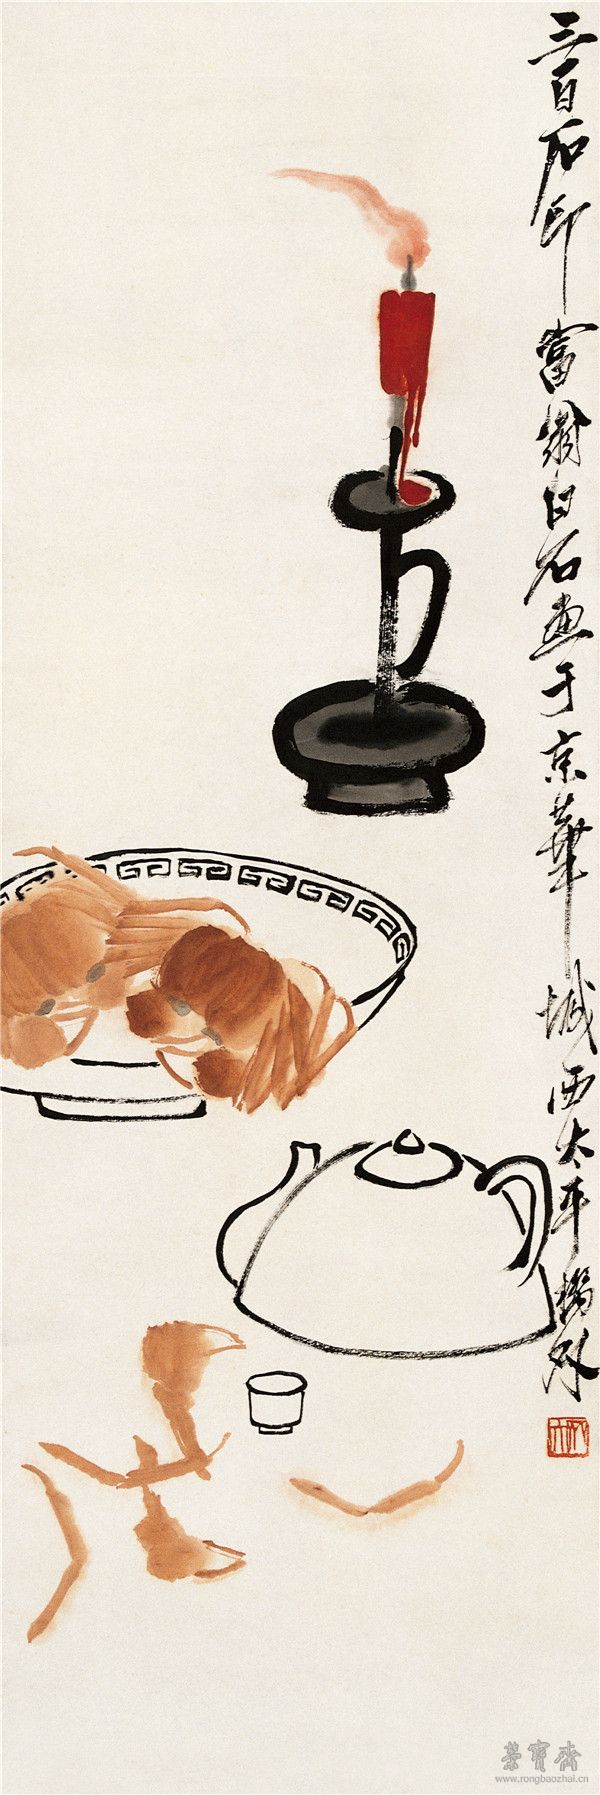 三百石印富翁白石画于京華城西太平橋外
木人
榮寶齋
www.rongbaozhai.cn